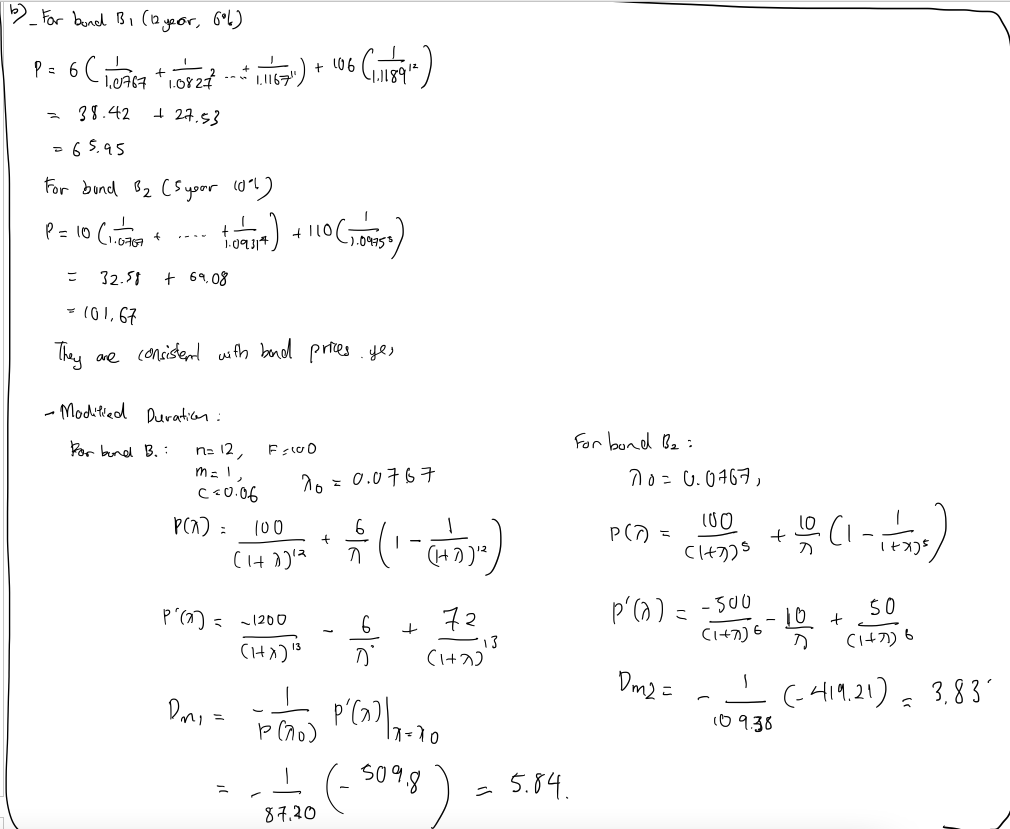 b) - For bond B1 (12 year, 6%)
P = 6 ( 1/1.0767 + 1/1.0827² ... + 1/1.1167¹¹ ) + 106 ( 1/1.1189¹² )
= 38.42 + 27.53
= 65.95
For bond B2 (5 year 10%)
P = 10 ( 1/1.0767 + .... + 1/1.0931⁴ ) + 110 ( 1/1.0975⁵ )
= 32.58 + 69.08
= 101.67
They are consistent with bond prices. yes
- Modified Duration :
For bond B1 : n = 12, F = 100
m = 1,
c = 0.06
λ0 = 0.0767
P(λ) = 100/(1+λ)¹² + 6/λ ( 1 - 1/(1+λ)¹² )
P'(λ) = -1200/(1+λ)¹³ - 6/λ² + 72/(1+λ)¹³
Dm1 = - 1/P(λ0) P'(λ)|λ=λ0
= - 1/87.20 ( - 509.8 ) = 5.84.
For bond B2 :
λ0 = 0.0767,
P(λ) = 100/(1+λ)⁵ + 10/λ ( 1 - 1/(1+λ)⁵ )
P'(λ) = -500/(1+λ)⁶ - 10/λ + 50/(1+λ)⁶
Dm2 = - 1/109.38 (- 419.21) = 3.83